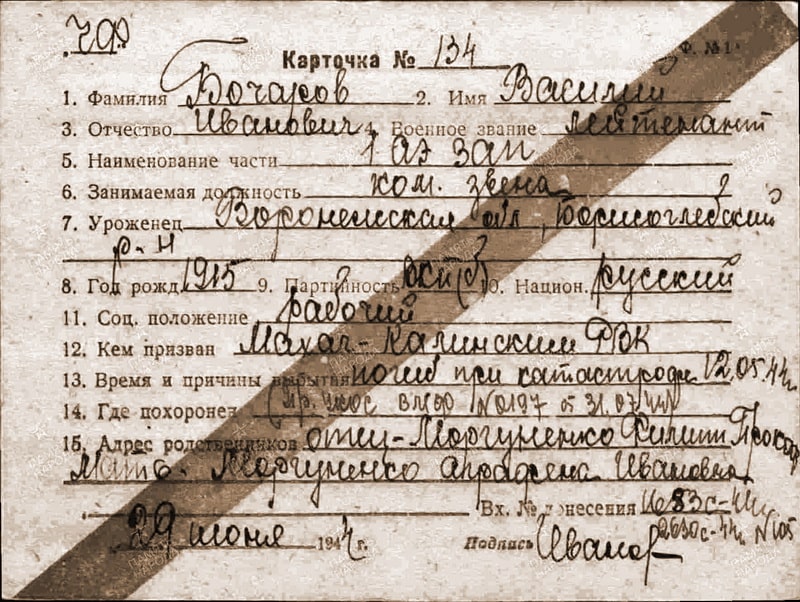 ЧФ
Карточка № 134 Ф. №1
1. Фамилия Бочаров 2. Имя Василий
3. Отчество Иванович 4. Военное звание лейтенант
5. Наименование части 1 АЭ ЗАП
6. Занимаемая должность ком. звена
7. Уроженец Воронежская обл, Борисоглебский
р-н
8. Год рожд 1915 9. Партийность ВКП(б) 10. Национ. русский
11. Соц. положение рабочий
12. Кем призван Махач-Калинским РВК
13. Время и причины выбытия погиб при катастрофе 12.05.44г.
14. Где похоронен (Пр. ВМФ №0197 от 31.07.44г
15. Адрес родственников отец-Моргуненко Филипп
Мать. Моргуненко Ивановна
Вх. № донесения 83с-44г
29 июня 1944 г. Подпись Иванов 2630с-44г. №105